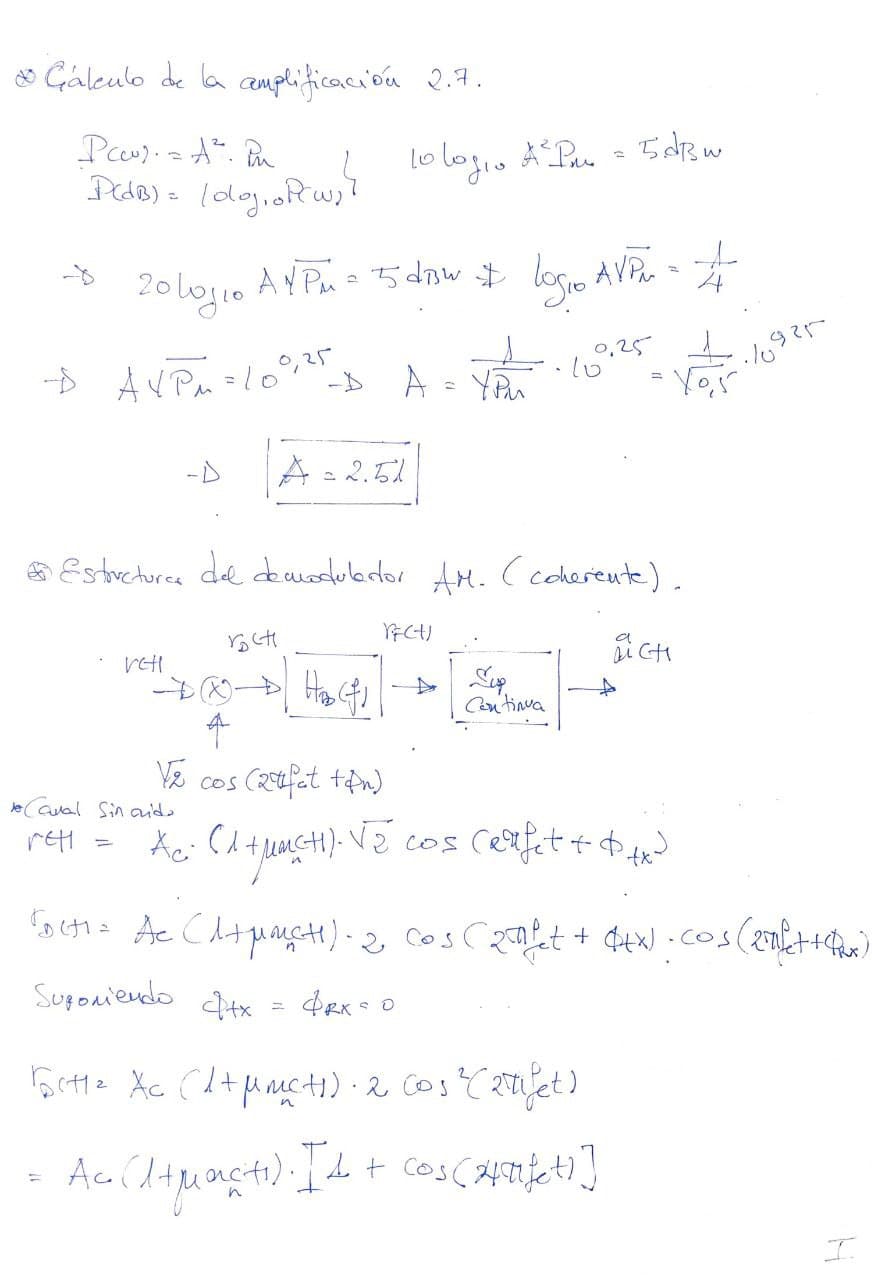 ⊛ Cálculo de la amplificación 2.7.
P(w) = A². Pm } 10 log₁₀ A² Pm = 5 dBw
P(dB) = 10 log₁₀ P(w)
→ 20 log₁₀ A √Pm = 5 dBw log₁₀ A√Pm = 1/4
→ A √Pm = 10^0,25 → A = 1/√Pm · 10^0.25 = 1/√0,5 · 10^0,25
→ A = 2.51
⊛ Estructura del demodulador AM. (coherente).
r(t) r_D(t) r_F(t) â(t)
→ ⊗ → H_B(f) → Sup Continua →
√2 cos(2πfct + ϕn)
* Canal sin ruido
r(t) = Ac · (1+μmn(t)) · √2 cos(2πfct + ϕtx)
r_D(t) = Ac (1+μmn(t)) · 2 cos(2πfct + ϕtx) · cos(2πfct + ϕRx)
Suponiendo ϕtx = ϕRx = 0
r_D(t) = Ac (1+μmn(t)) · 2 cos²(2πfct)
= Ac (1+μmn(t)) · [1 + cos(4πfct)]
I